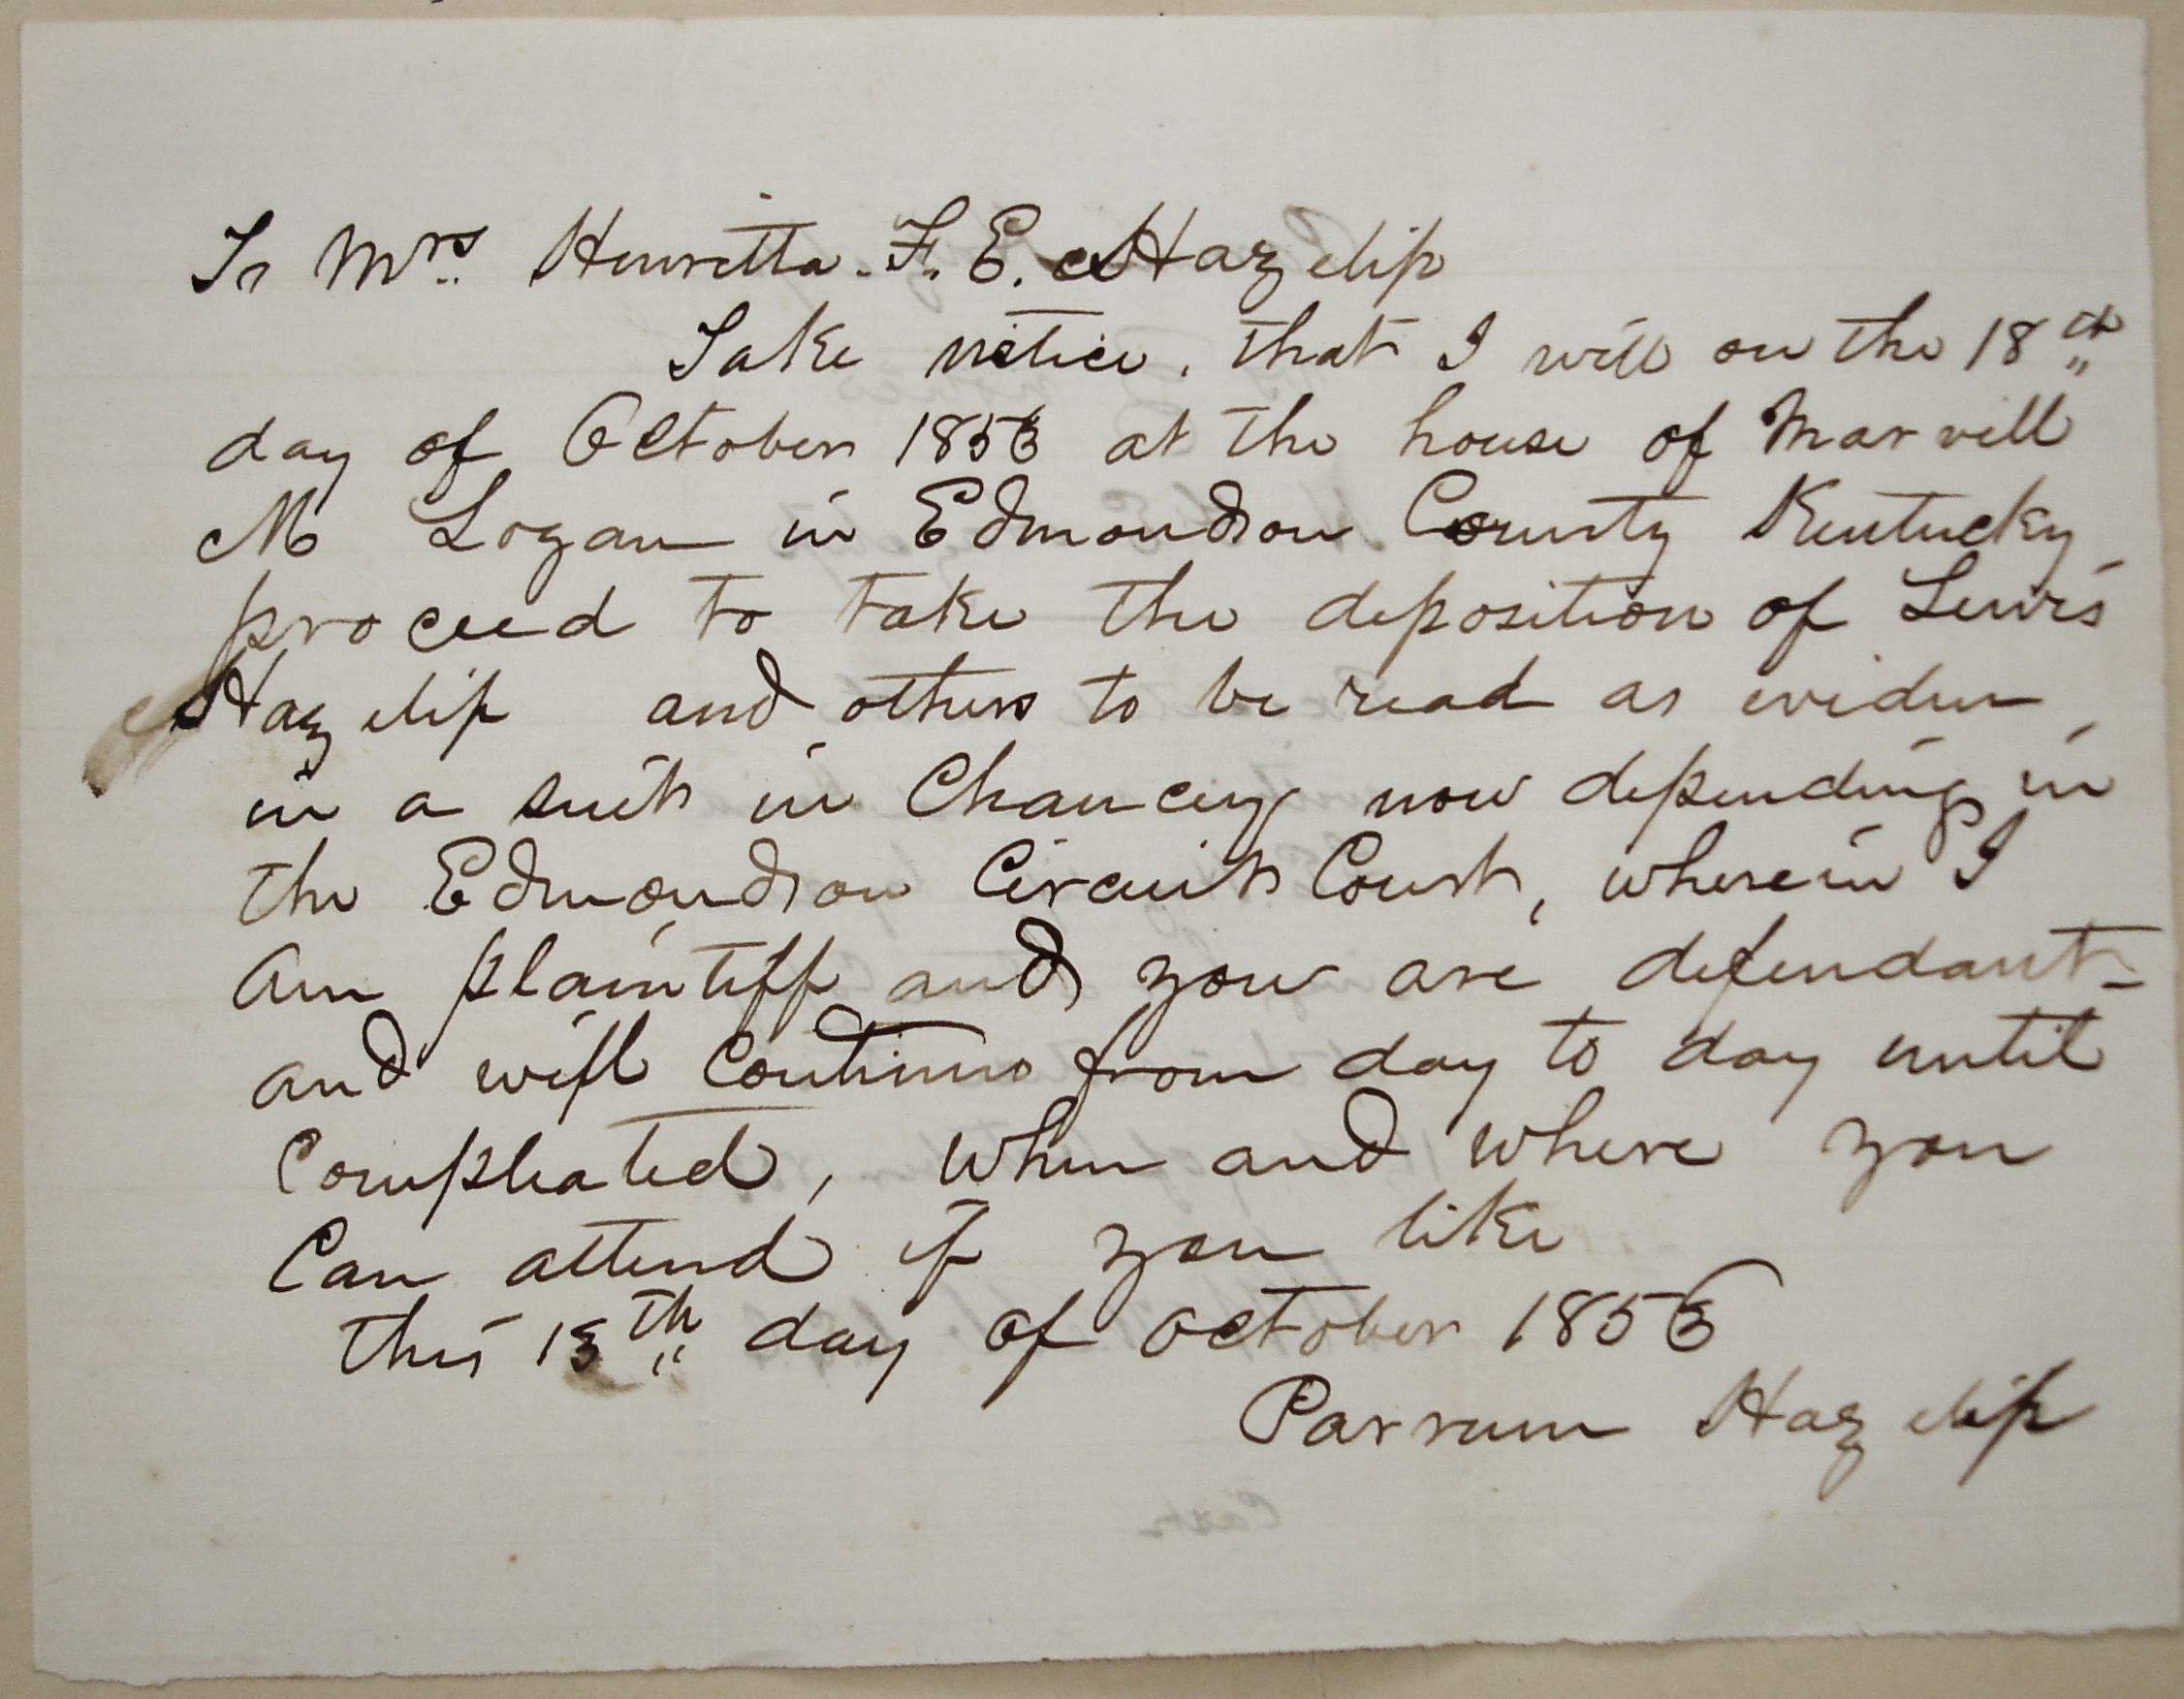 To Mrs Henretta. F. E. Hazelip
Take notice, that I will on the 18th
day of October 1856 at the house of Marvell
M Logan in Edmondson County Kentucky
proceed to take the deposition of Lewis
Hazelip and others to be read as eviden
in a suit in Chancey now depending in
the Edmondson Circuit Court, wherein I
Am plaintiff and you are defendant-
and will Continue from day to day until
Compleated, when and where you
Can attend if you like
this 13th day of October 1856
Parrum Hazelip